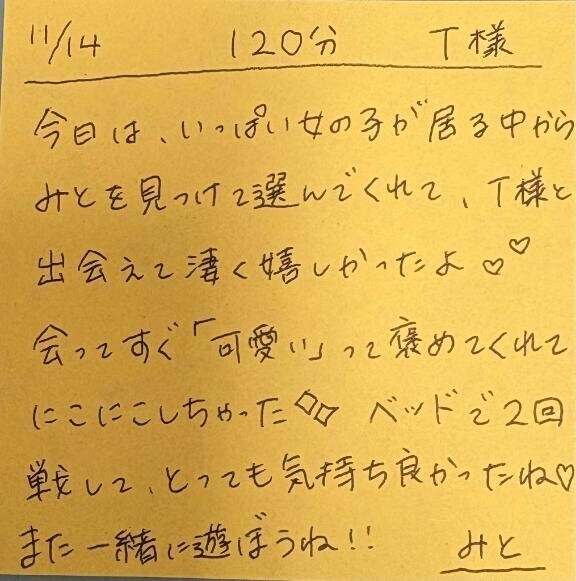 11/14 120分 T様
今日は、いっぱい女の子が居る中から
みとを見つけて選んでくれて、T様と
出会えて凄く嬉しかったよ♡♡
会ってすぐ「可愛い」って褒めてくれて
にこにこしちゃった◇◇ ベッドで2回
戦して、とっても気持ち良かったね♡
また一緒に遊ぼうね!! みと